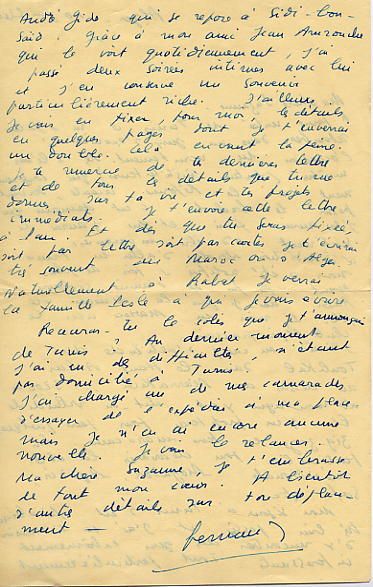 André Gide qui se repose à Sidi-bou-
Saïd. Grâce à mon ami Jean Amrouche
qui le voit quotidiennement, j'ai
passé deux soirées intimes avec lui
et j'en conserve un souvenir
particulièrement riche. D'ailleurs
je vais en fixer pour moi les détails
en quelques pages dont je t'enverrai
un double. Cela en vaut la peine.
Je te remercie de ta dernière lettre
et de tous les détails que tu me
donnes sur ta vie et tes projets
immédiats. Je t'envoie cette lettre
à Et dès que tu seras fixée,
soit par lettre soit par cartes je t'écrirai
très souvent du Maroc ou d'Alger
Naturellement à Rabat je verrai
la famille à qui je vais écrire
Recevras-tu le colis que je t'annonçais
de Tunis ? Au dernier moment
j'ai eu des difficultés, n'étant
pas domicilié à Tunis.
J'ai chargé un de mes camarades
d'essayer de l'expédier à ma place
mais je n'en ai encore aucune
nouvelle. Je vais le relancer.
Ma chère Suzanne, je t'embrasse
de tout mon cœur. A bientôt
d'autres détails sur ton déplace-
ment —
Fernand